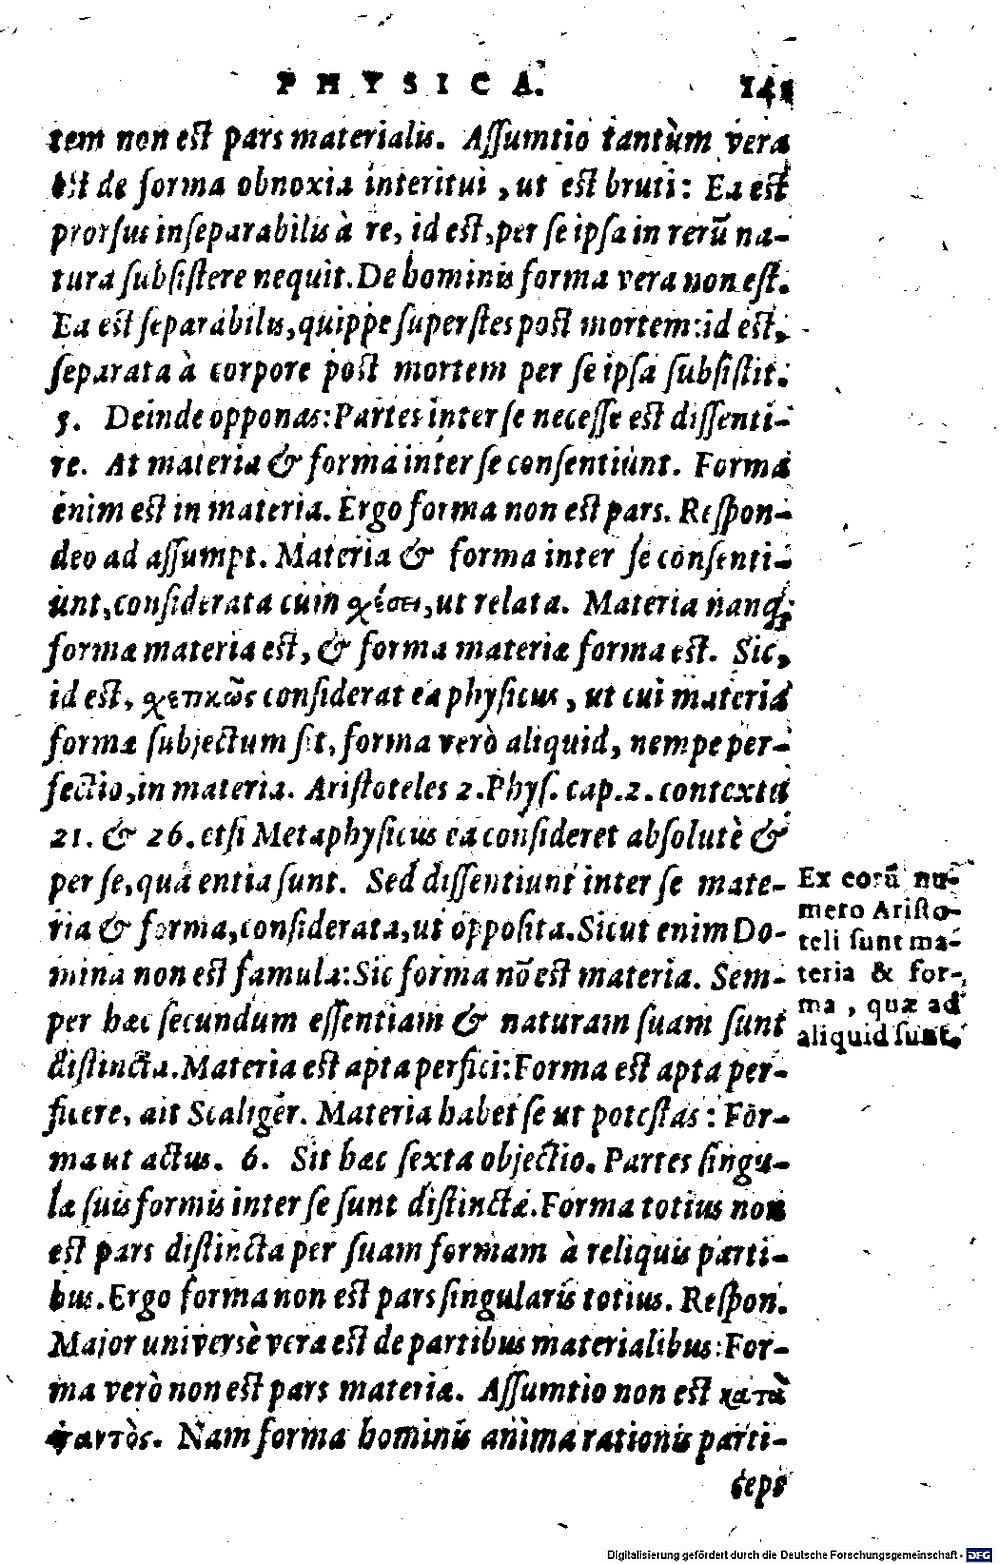 PHYSICA. 145
tem non est pars materialis. Assumtio tantùm vera
est de forma obnoxia interitui, ut est bruti: Ea est
prorsus inseparabilis à re, id est, per se ipsa in rerū na-
tura subsistere nequit. De hominis forma vera non est.
Ea est separabilis, quippe superstes post mortem: id est,
separata à corpore post mortem per se ipsa subsistit.
5. Deinde opponas: Partes inter se necesse est dissenti-
re. At materia & forma inter se consentiunt. Forma
enim est in materia. Ergo forma non est pars. Respon-
deo ad assumpt. Materia & forma inter se consenti-
unt, considerata cum χέσει, ut relata. Materia nanq;
formæ materia est, & forma materiæ forma est. Sic,
id est, χετικῶς considerat ea physicus, ut cui materia
formæ subjectum sit, forma verò aliquid, nempe per-
fectio, in materia. Aristoteles 2. Phys. cap. 2. contextu
21. & 26. etsi Metaphysicus ea consideret absolutè &
per se, quâ entia sunt. Sed dissentiunt inter se mate-
ria & forma, considerata, ut opposita. Sicut enim Do-
mina non est famula: Sic forma nō est materia. Sem-
per hæc secundum essentiam & naturam suam sunt
distincta. Materia est apta perfici: Forma est apta per-
ficere, ait Scaliger. Materia habet se ut potestas: For-
ma ut actus. 6. Sit hæc sexta objectio. Partes singu-
læ suis formis inter se sunt distinctæ. Forma totius non
est pars distincta per suam formam à reliquis parti-
bus. Ergo forma non est pars singularis totius. Respon.
Major universè vera est de partibus materialibus: For-
ma verò non est pars materia. Assumtio non est κατὰ
παντὸς. Nam forma hominis anima rationis parti-
ceps
Ex eorū nu-
mero Aristo-
teli sunt ma-
teria & for-
ma, quæ ad
aliquid sunt.
Digitalisierung gefördert durch die Deutsche Forschungsgemeinschaft - DFG